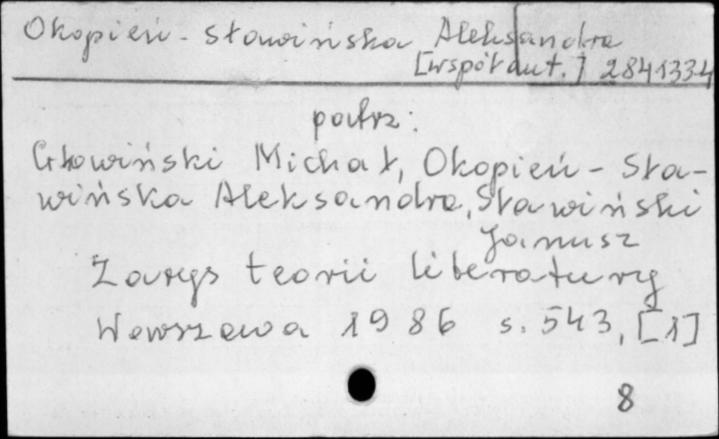 Okopień - Sławińska Aleksandra
[współaut.] 2841334
patrz:
Głowiński Michał, Okopień - Sła-
wińska Aleksandra, Sławiński
Janusz
Zarys teorii literatury
Warszawa 1986 s. 543, [1]
8